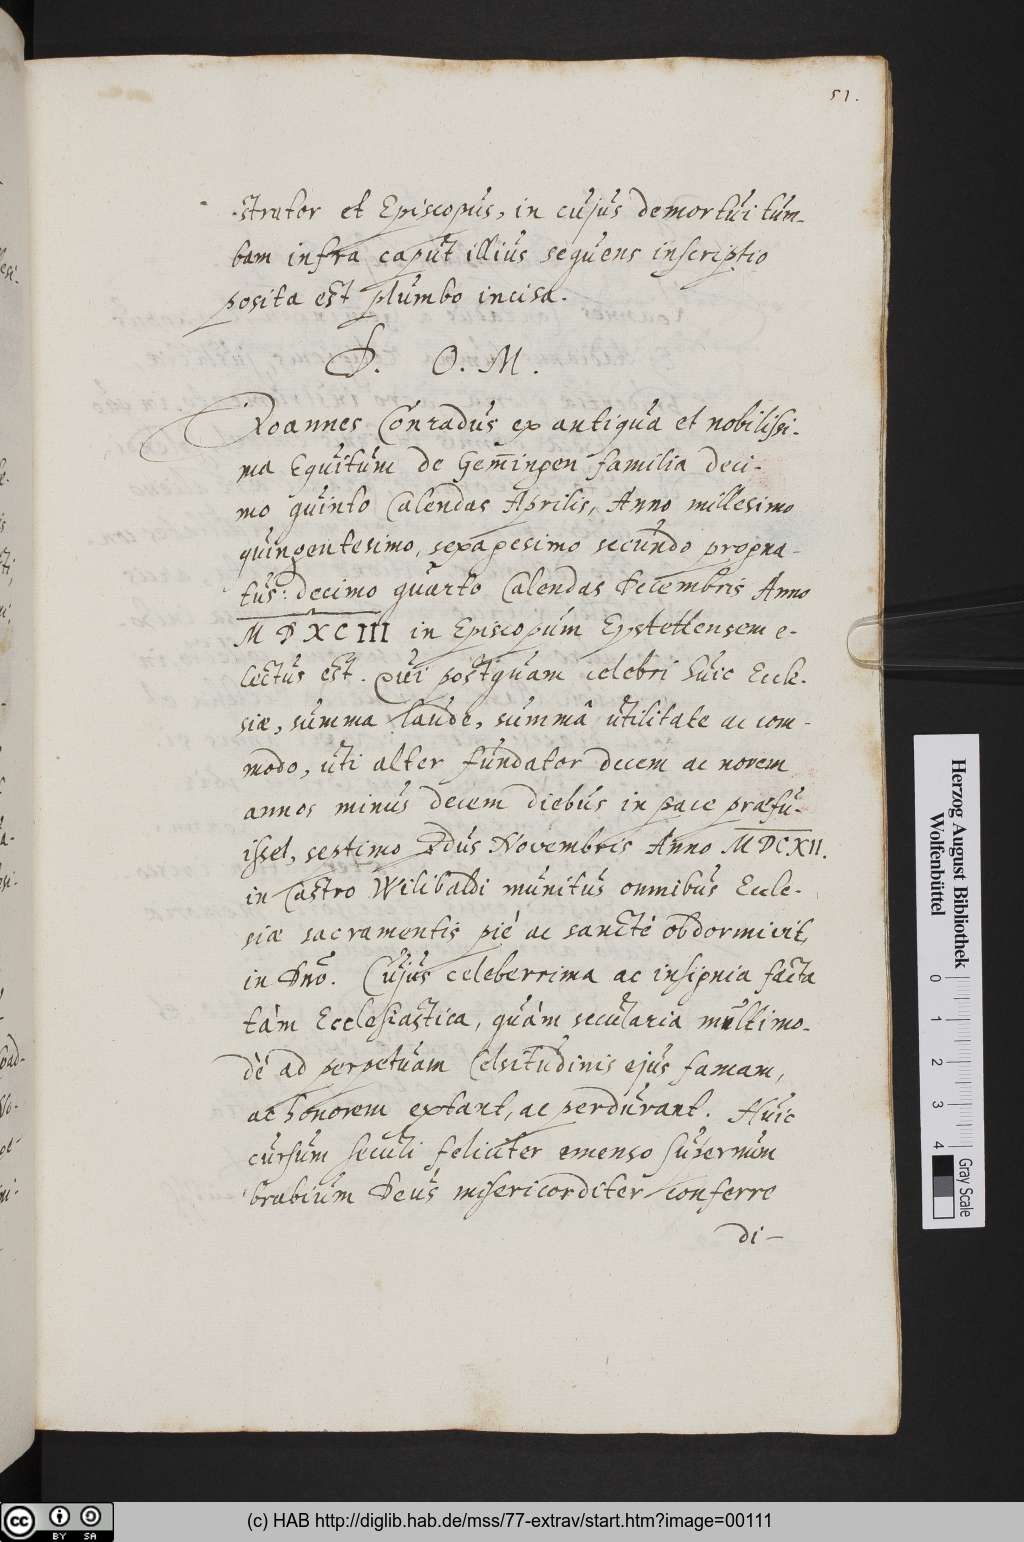 51.
strator et Episcopus, in cujus demortui tum-
bam infra caput illius sequens inscriptio
posita est plumbo incisa.
D. O. M.
Joannes Conradus ex antiqua et nobilissi-
ma Equitum de Gem̄ingen familia deci-
mo quinto Calendas Aprilis, Anno millesimo
quingentesimo, sexagesimo secundo progna-
tus: decimo quarto Calendas Decembris Anno
MDXCIII in Episcopum Eystettensem e-
lectus est. Qui postquam celebri huic Eccle-
siæ, summa laude, summâ utilitate ac com-
modo, uti alter fundator decem ac novem
annos minus decem diebus in pace præfu-
isset, septimo Idus Novembris Anno MDCXII.
in Castro Wilibaldi munitus omnibus Eccle-
siæ sacramentis piè ac sanctè obdormivit,
in Dno. Cujus celeberrima ac insignia facta
tàm Ecclesiastica, quàm secularia multimo-
dè ad perpetuam Celsitudinis ejus famam,
ac honorem extant, ac perdurant. Huic
cursum seculi feliciter emenso supernum
brabium Deus misericorditer conferre
di-
Herzog August Bibliothek
Wolfenbüttel
0 1 2 3 4
Gray Scale
cc BY SA
(c) HAB http://diglib.hab.de/mss/77-extrav/start.htm?image=00111